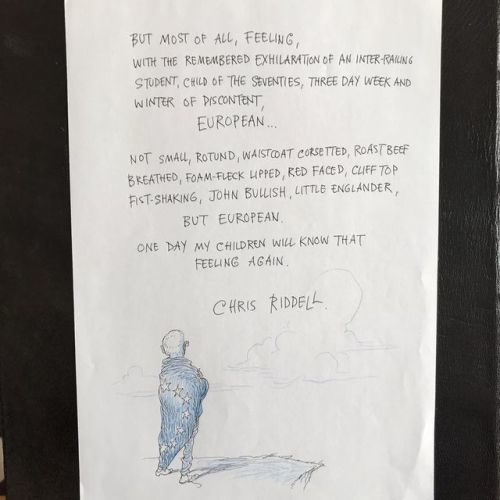 BUT MOST OF ALL, FEELING,
WITH THE REMEMBERED EXHILARATION OF AN INTER-RAILING
STUDENT, CHILD OF THE SEVENTIES, THREE DAY WEEK AND
WINTER OF DISCONTENT,
EUROPEAN...
NOT SMALL, ROTUND, WAISTCOAT CORSETTED, ROAST BEEF
BREATHED, FOAM-FLECK LIPPED, RED FACED, CLIFF TOP
FIST-SHAKING, JOHN BULLISH, LITTLE ENGLANDER,
BUT EUROPEAN.
ONE DAY MY CHILDREN WILL KNOW THAT
FEELING AGAIN.
CHRIS RIDDELL.